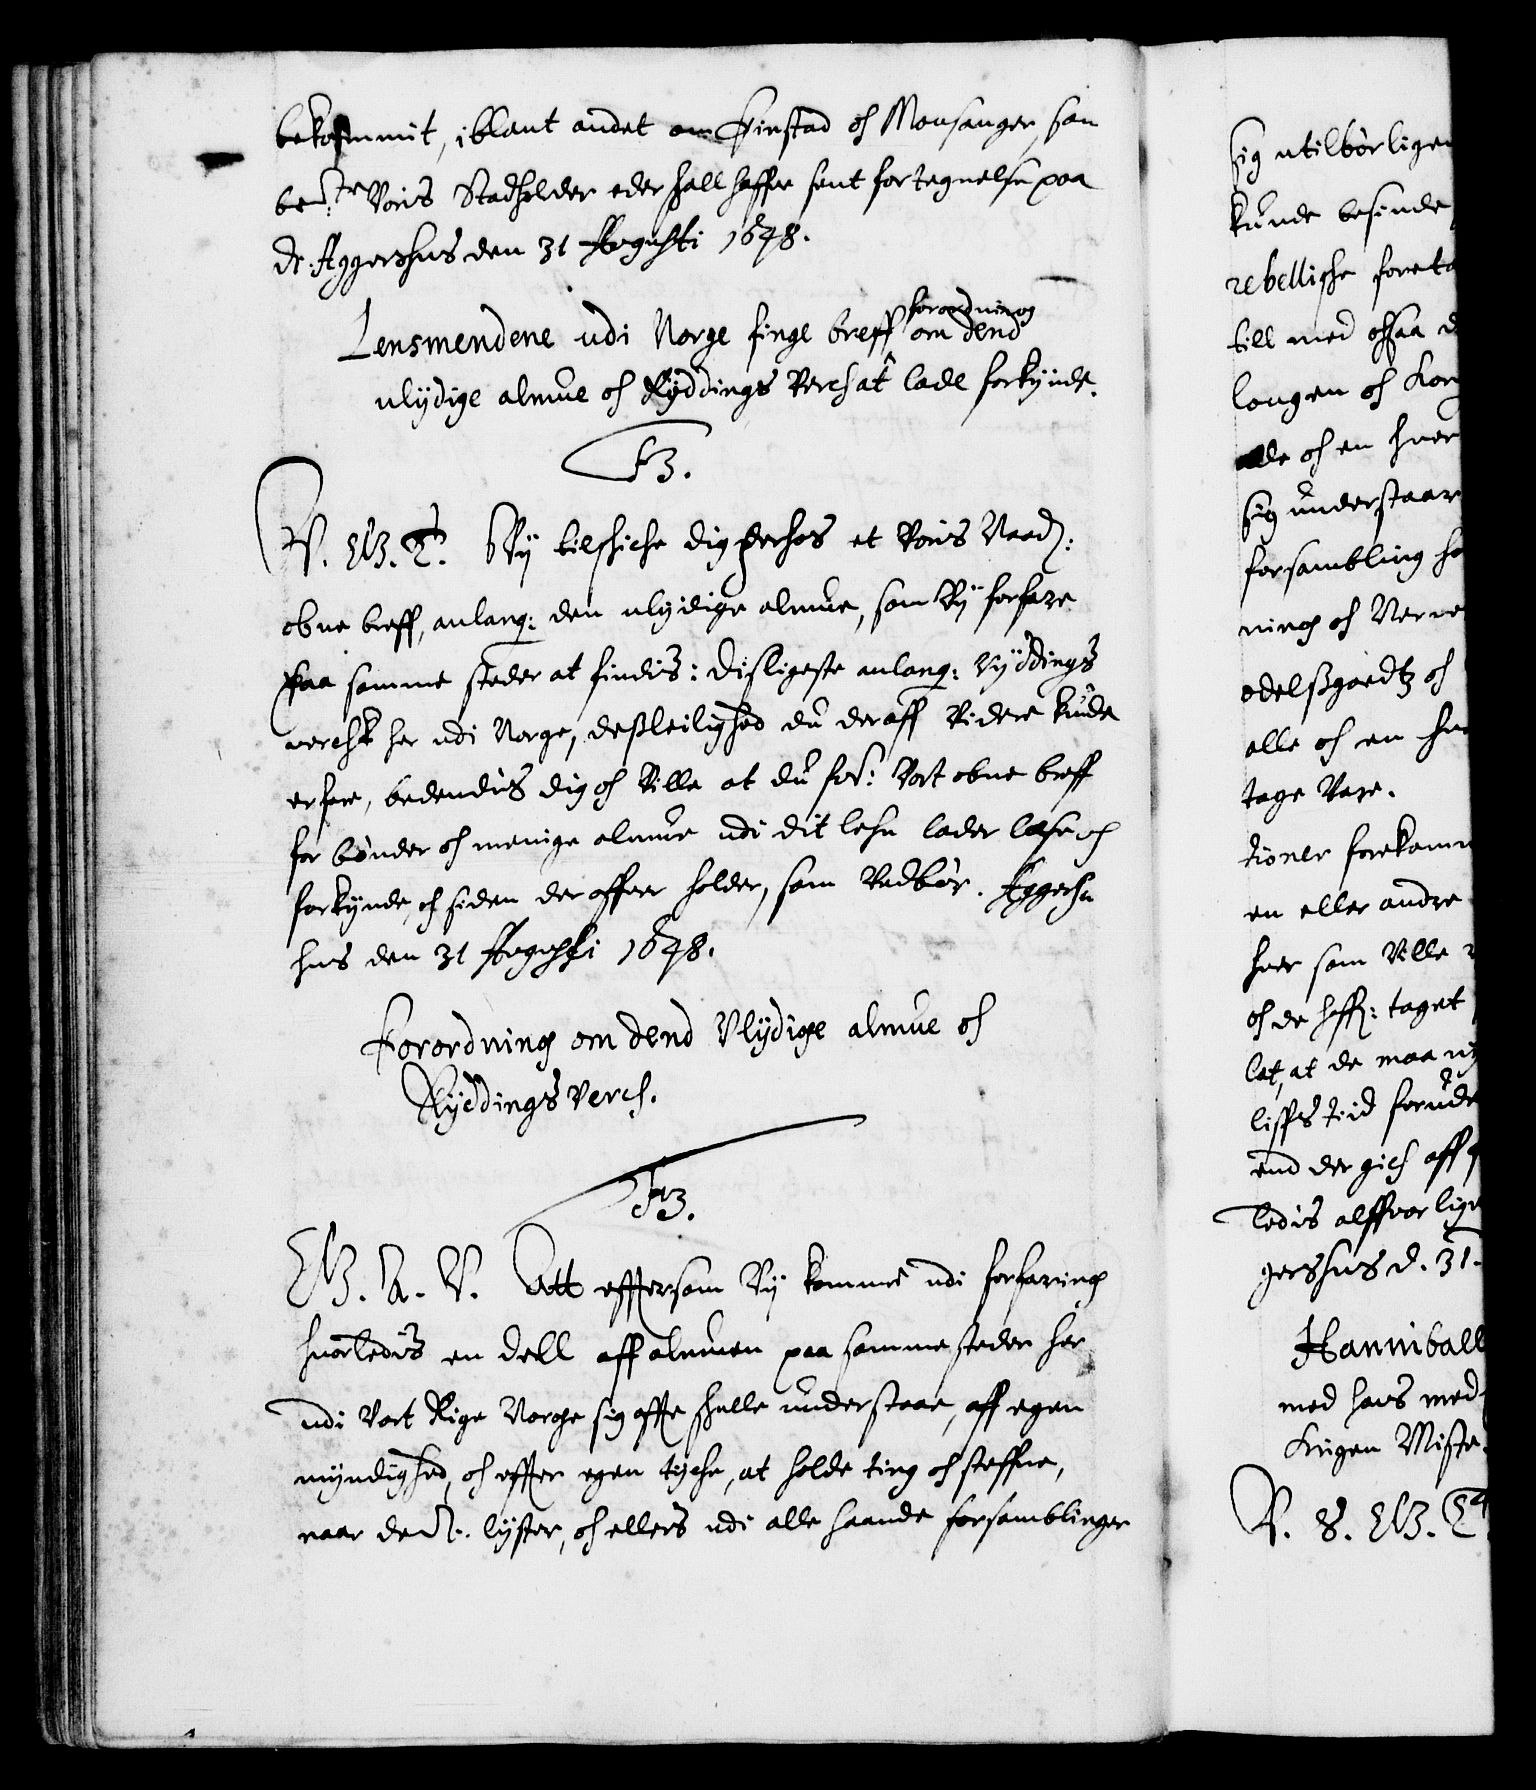 bekommit, iblant andet om Finstad och Mousanger, som
bem:te Voris Stadholder eder skall haffve sent fortegnelse paa
dr. Aggershus den 31 Augusti 1648.
Lensmendene udi Norge finge breff forordning om dend
ulydige almue och Ryddings Verch at lade forkynde.
F3.
V. G. T. Vy tilskiche dig herhos et Voris Naad:
obne breff, anlang: den ulydige almue, som Vy forfare
paa somme steder at findis: disligeste anlang: Ryddings
verchk her udi Norge, des leilighed du deraff Videre kunde
erfare, bedendis dig och Ville at du for: Vort obne breff
for bønder och menige almue udi dit lehn lader læse och
forkynde, och siden der offver holder, som Vedbør. Aggers
hus den 31 Augusti 1648.
Forordning om dend Ulydige almue och
Ryddings Verch.
F3.
G. A. V. Att efftersom Vy komme udi forfaring
huorledis en dell aff almuen paa somme steder her
udi Vort Rige Norge sig offte skulle understaae, aff egen
myndighed, och effter egen tyche, at holde ting och steffne,
naar dem lyster, och ellers udi alle haande forsamblinger
sig utilbørligen
kunde besinde
rebellische foreta
till med ochsaa d
lougen och Kon
alle och en huer
sig understaar
forsambling ho
ning och Verne
odelsgaedtz och
alle och en hu
tage Vare.
tioner forekom
en eller andre
huer som Ville
och de haff: taget
lat, at de maa
liffs tiid forude
end der gich aff
ledis alffvorlige
gershus d. 31.
Hanniball
med hans med
Krigen Miste.
V. S. G. T